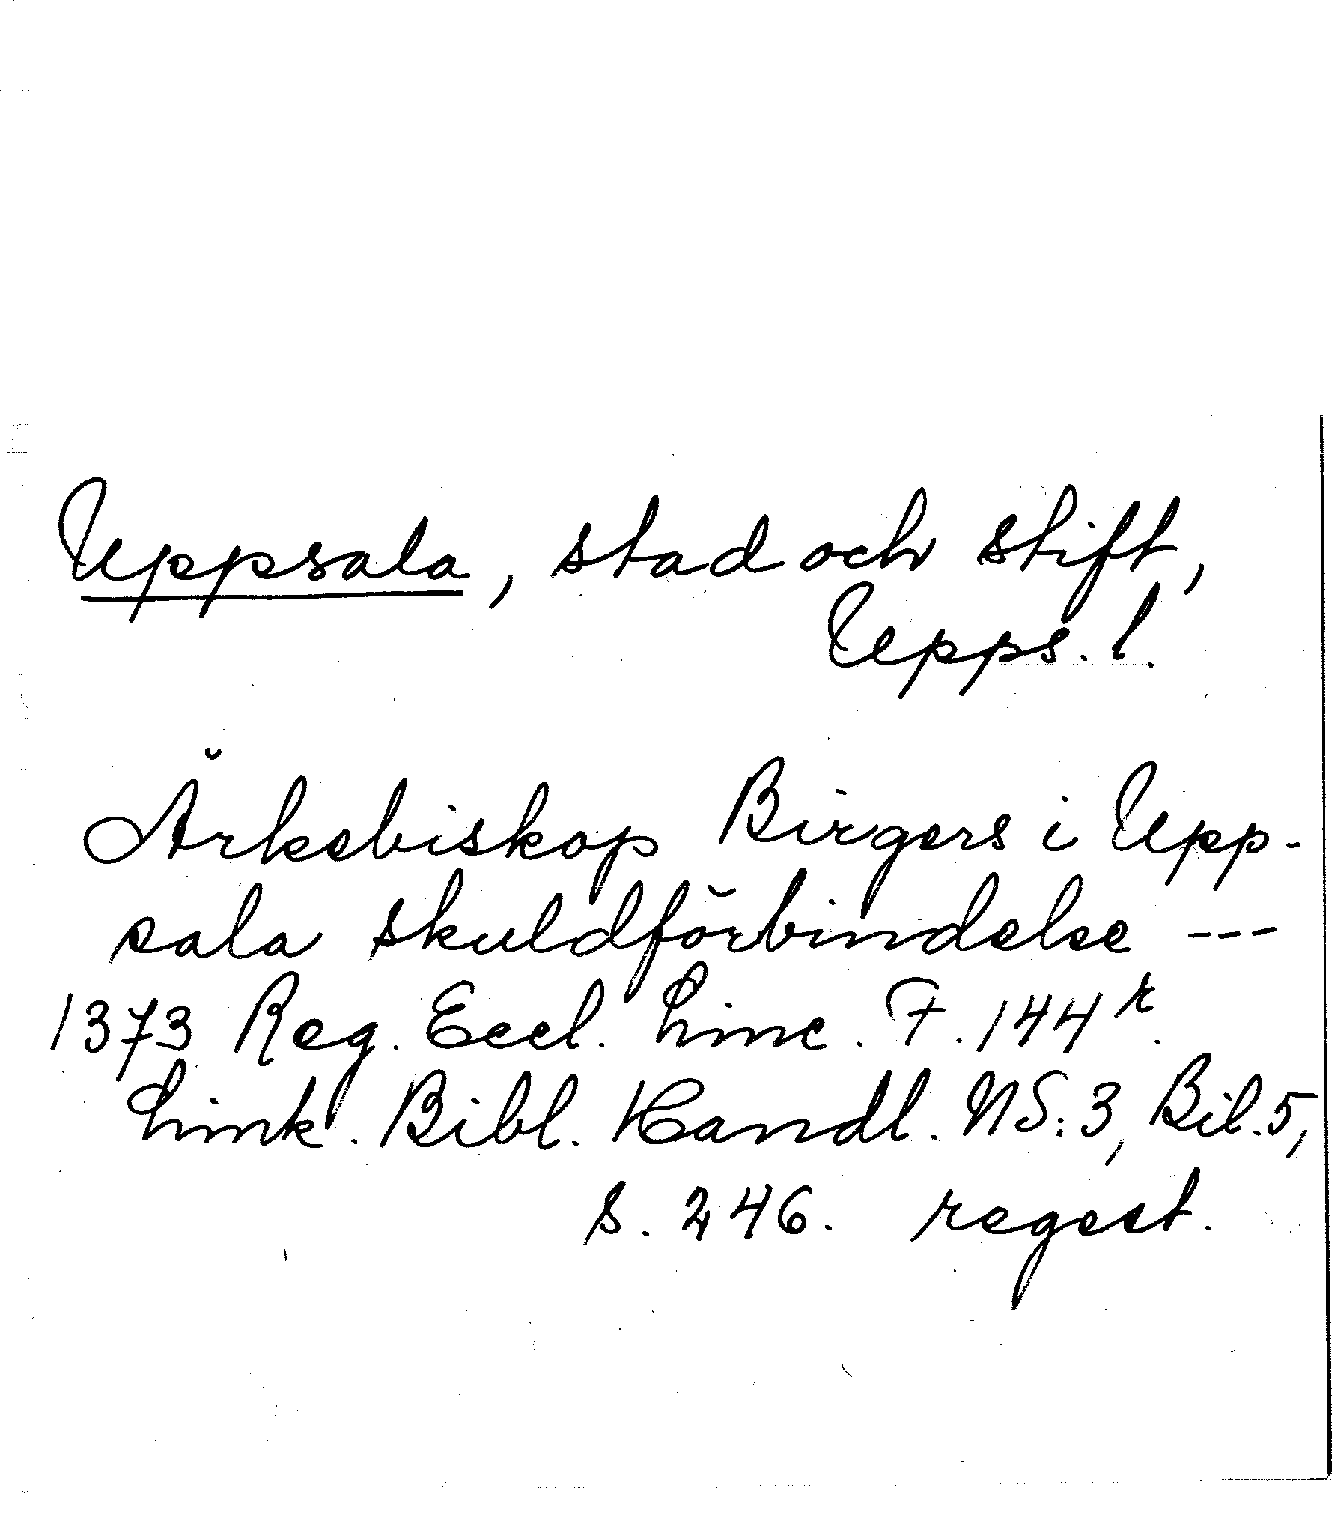 Uppsala, stad och stift,
Upps. l.
Ärkebiskop Birgers i Upp-
sala skuldförbindelse ---
1373 Reg. Eccl. Linc. F. 144r.
Link. Bibl. Handl. NS: 3, Bil. 5,
s. 246. regest.